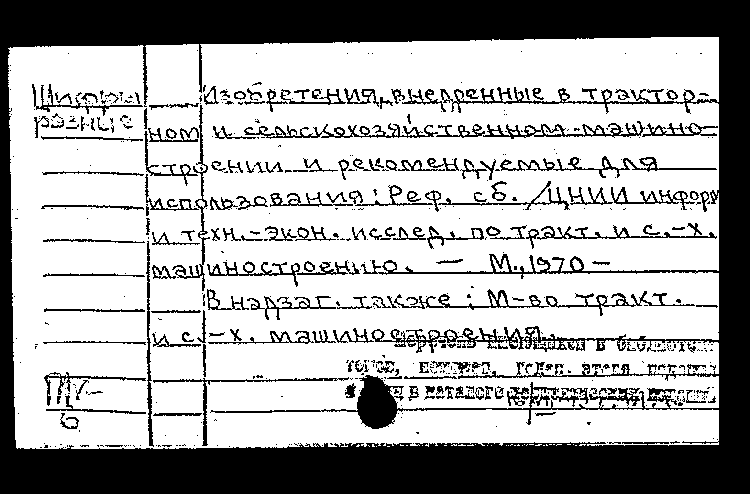 Шифры
разные
Изобретения, внедренные в трактор-
ном и сельскохозяйственном машино-
строении и рекомендуемые для
использования: Реф. сб. /ЦНИИ информ
и техн.-экон. исслед. по тракт. и с.-х.
машиностроению. — М., 1970 —
В надзаг. также: М-во тракт.
и с.-х. машиностроения.
имеющихся в библиотеке
томов, номеров,
в каталоге периодических изданий
6